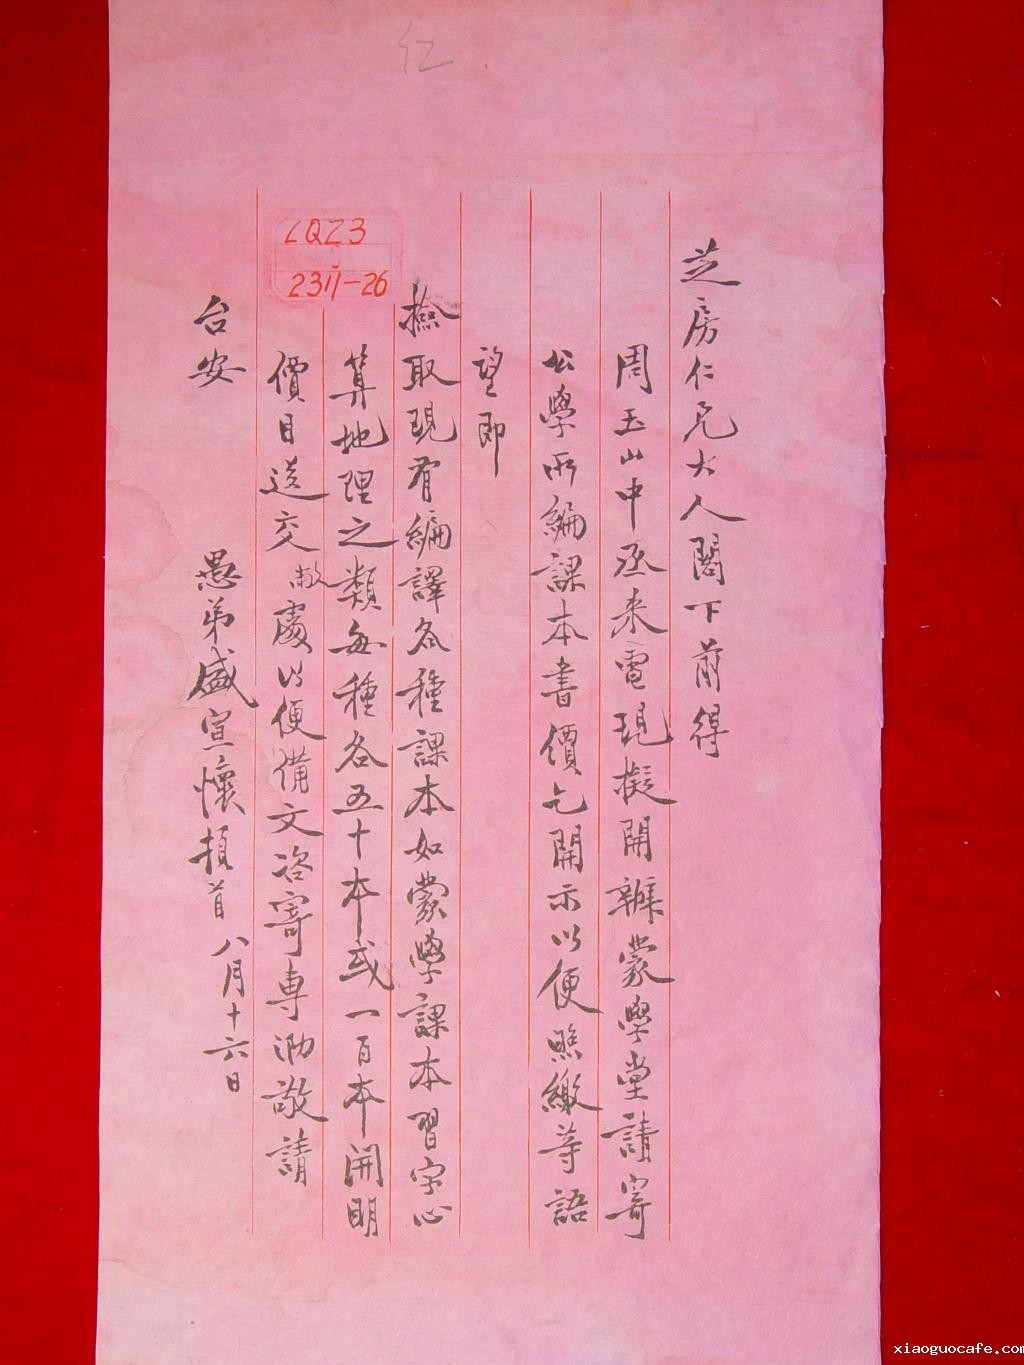 仁
芝房仁兄大人閣下前得
周玉山中丞来電現擬開辦蒙學堂請寄
公學所編課本書價乞開示以便照繳等語
望即
撿取現有編譯各種課本如蒙學課本習字心
算地理之類每種各五十本或一百本開明
價目送交敝處以便備文咨寄專泐敬請
台安
愚弟盛宣懷頓首 八月十六日
LQZ3
2311-26
xiaoguocafe.com